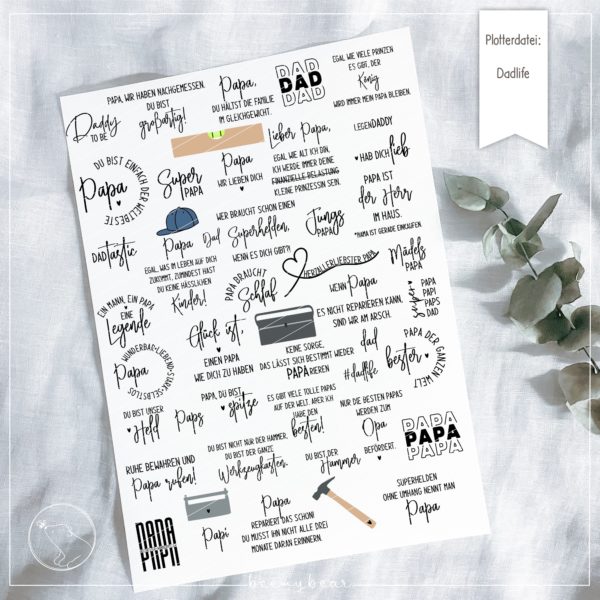 Plotterdatei:
Dadlife
PAPA, WIR HABEN NACHGEMESSEN.
DU BIST
großartig!
Daddy
TO BE
Papa,
DU HÄLTST DIE FAMILIE
IM GLEICHGEWICHT.
DAD
DAD
DAD
EGAL WIE VIELE PRINZEN
ES GIBT, DER
König
WIRD IMMER MEIN PAPA BLEIBEN.
DU BIST EINFACH DER WELTBESTE
Papa
Super
PAPA
Papa
WIR LIEBEN DICH
Lieber Papa,
EGAL WIE ALT ICH BIN,
ICH WERDE IMMER DEINE
FINANZIELLE BELASTUNG
KLEINE PRINZESSIN SEIN.
LEGENDADDY
HAB DICH lieb
PAPA IST
der Herr
IM HAUS.
*MAMA IST GERADE EINKAUFEN
DADtastic
Papa
EGAL, WAS IM LEBEN AUF DICH
ZUKOMMT, ZUMINDEST HAST
DU KEINE HÄSSLICHEN
Kinder!
Dad
WER BRAUCHT SCHON EINEN
Superhelden,
WENN ES DICH GIBT?!
Jungs
PAPA
PAPA BRAUCHT
Schlaf
HERZALLERLIEBSTER PAPA
Mädels
PAPA
EIN MANN, EIN PAPA,
EINE
Legende
WENN Papa
ES NICHT REPARIEREN KANN,
SIND WIR AM ARSCH.
super
PAPA
PAPI
PAPS
DAD
Glück ist,
EINEN PAPA
WIE DICH ZU HABEN
WUNDERBAR•LIEBEND•STARK•SELBSTLOS
Papa
KEINE SORGE,
DAS LÄSST SICH BESTIMMT WIEDER
PAPARIEREN
dad
#dadlife
bester
PAPA DER GANZEN WELT
DU BIST UNSER
Held
Paps
PAPA, DU BIST
spitze
ES GIBT VIELE TOLLE PAPAS
AUF DER WELT. ABER ICH
HABE DEN
besten!
NUR DIE BESTEN PAPAS
WERDEN ZUM
Opa
BEFÖRDERT.
PAPA
PAPA
PAPA
RUHE BEWAHREN UND
Papa rufen!
DU BIST NICHT NUR DER HAMMER,
DU BIST DER GANZE
Werkzeugkasten.
DU BIST DER
Hammer
SUPERHELDEN
OHNE UMHANG NENNT MAN
Papa
PAPA
Papi
Papa
REPARIERT DAS SCHON!
DU MUSST IHN NICHT ALLE DREI
MONATE DARAN ERINNERN.
beemybear